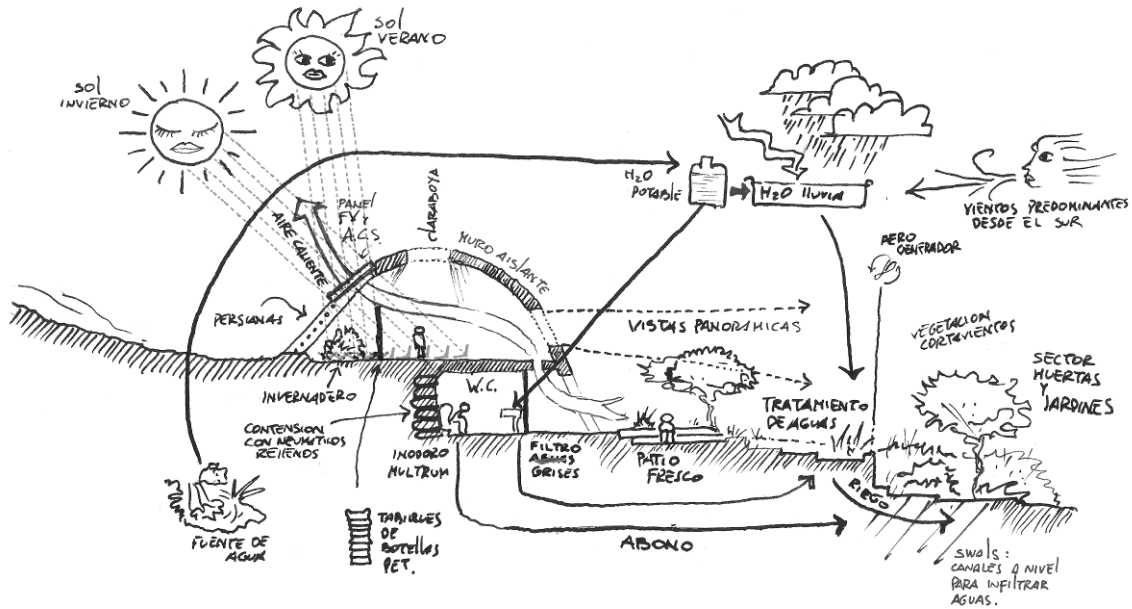 SOL
VERANO
SOL
INVIERNO
AIRE CALIENTE
PANEL
FV Y
A.C.S.
CLARABOYA
MURO AISLANTE
PERSIANAS
H2O
POTABLE
H2O LLUVIA
VIENTOS PREDOMINANTES
DESDE EL SUR
AERO
GENERADOR
VISTAS PANORAMICAS
VEGETACION
CORTAVIENTOS
SECTOR
HUERTAS
Y
JARDINES
INVERNADERO
W.C.
CONTENSION
CON NEUMATICOS
RELLENOS
INODORO
MULTRUM
FILTRO
AGUAS
GRISES
PATIO
FRESCO
TRATAMIENTO
DE AGUAS
RIEGO
FUENTE DE
AGUA
TABIQUES
DE
BOTELLAS
PET.
ABONO
SWALS:
CANALES A NIVEL
PARA INFILTRAR
AGUAS.